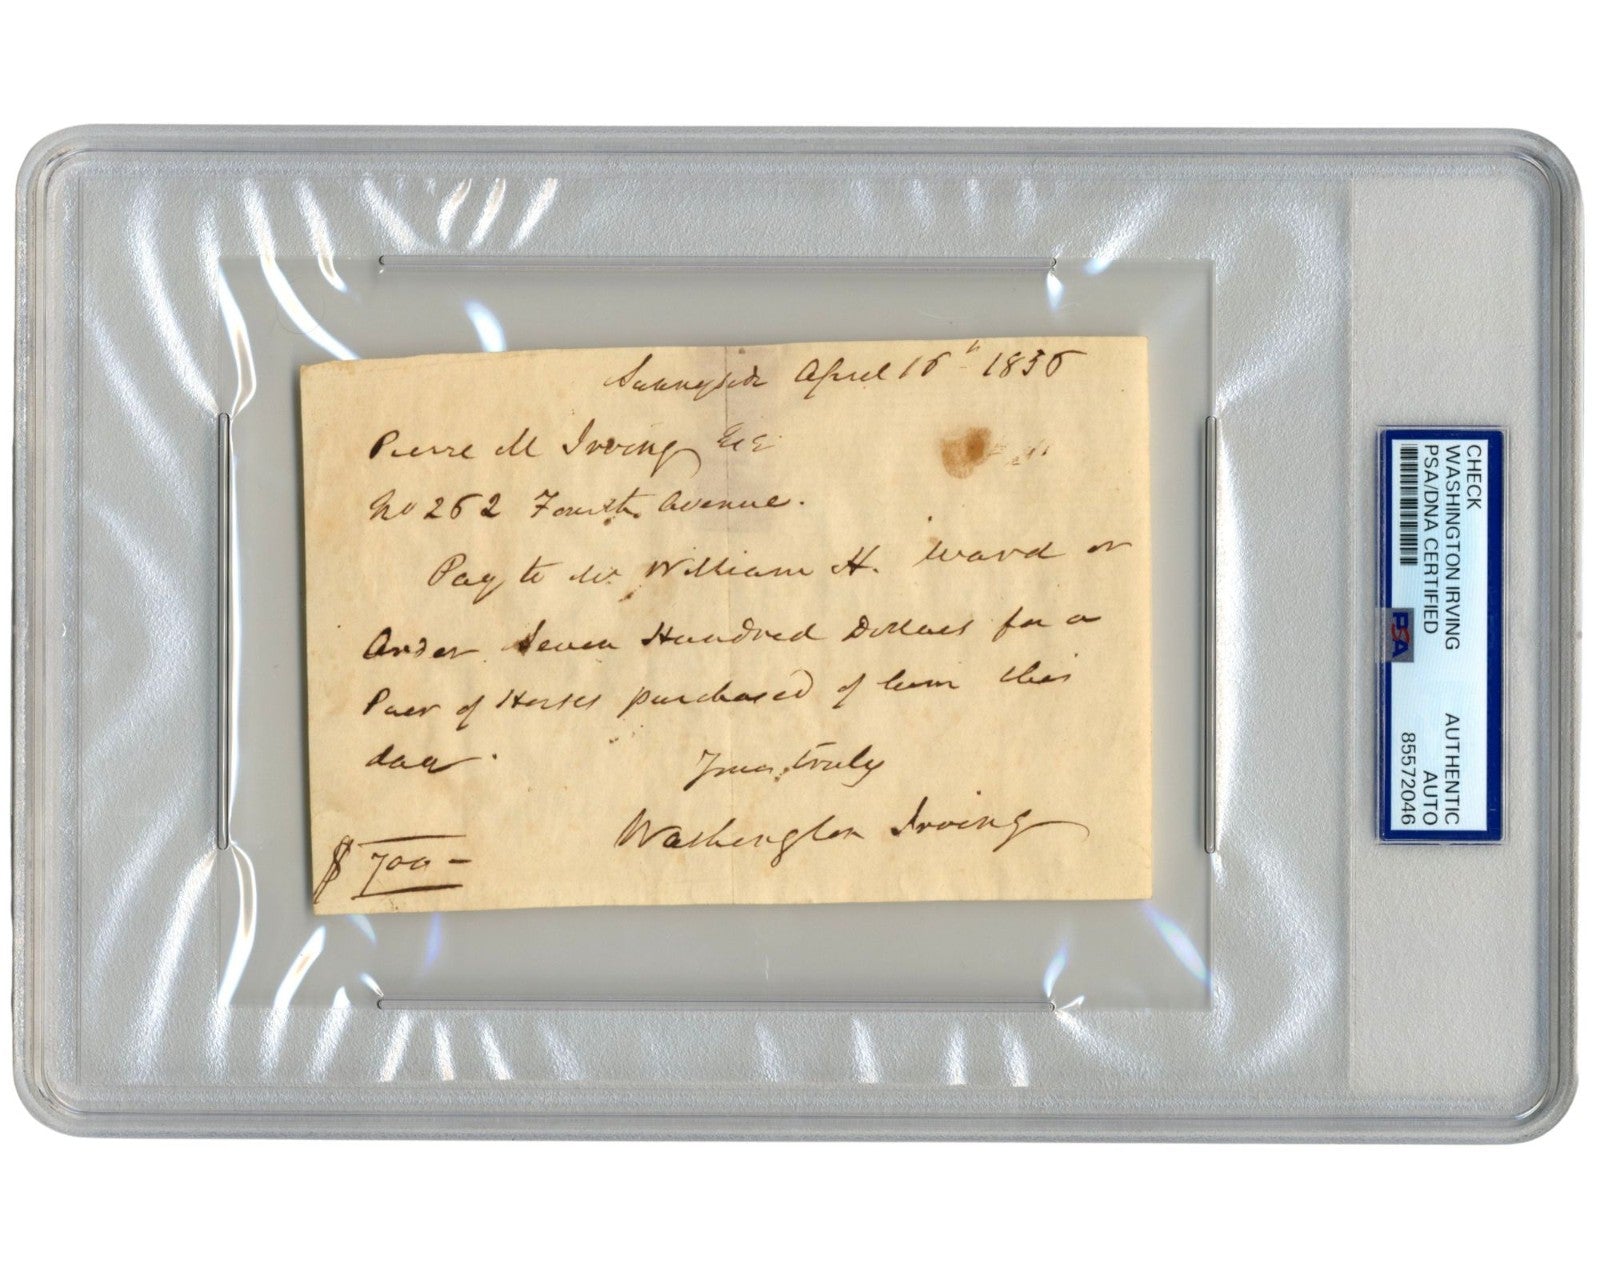 Sunnyside April 16th 1856
Pierre M Irving Esq
No 262 Fourth Avenue.
Pay to Mr William H. Ward or
Order Seven Hundred Dollars for a
Pair of Horses purchased of him this
day.
Yours truly
Washington Irving
$ 700 –
CHECK
WASHINGTON IRVING
PSA/DNA CERTIFIED
AUTHENTIC
AUTO
85572046
PSA